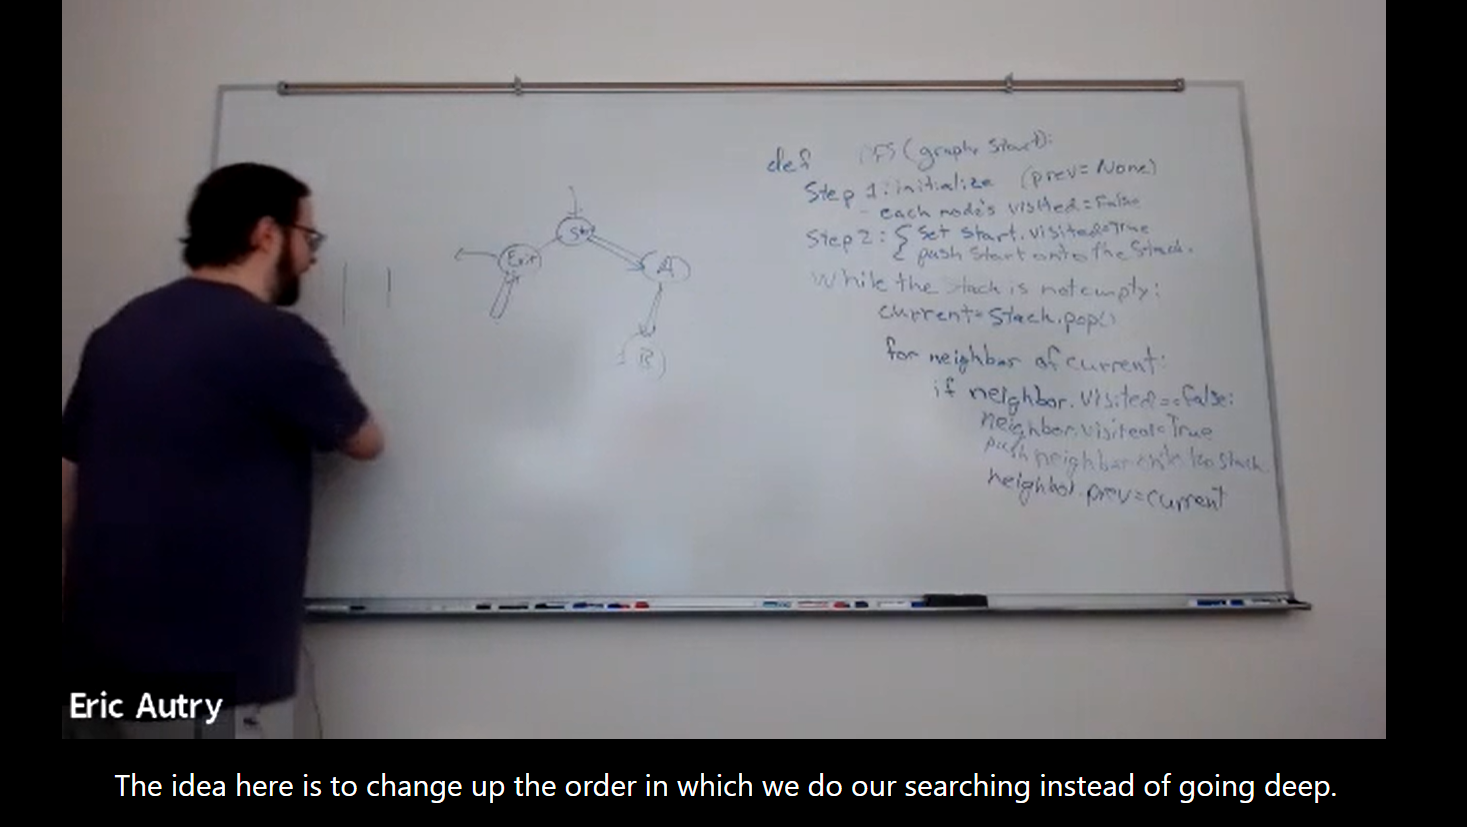 def DFS(graph, start):
Step 1: initialize (prev=None)
- each node's visited=False
Step 2: { set start.visited=True
push start onto the stack.
While the stack is not empty:
current=Stack.pop()
for neighbor of current:
if neighbor.visited==False:
neighbor.visited=True
push neighbor onto the stack
neighbor.prev=current
St
Exit
A
B
Eric Autry
The idea here is to change up the order in which we do our searching instead of going deep.